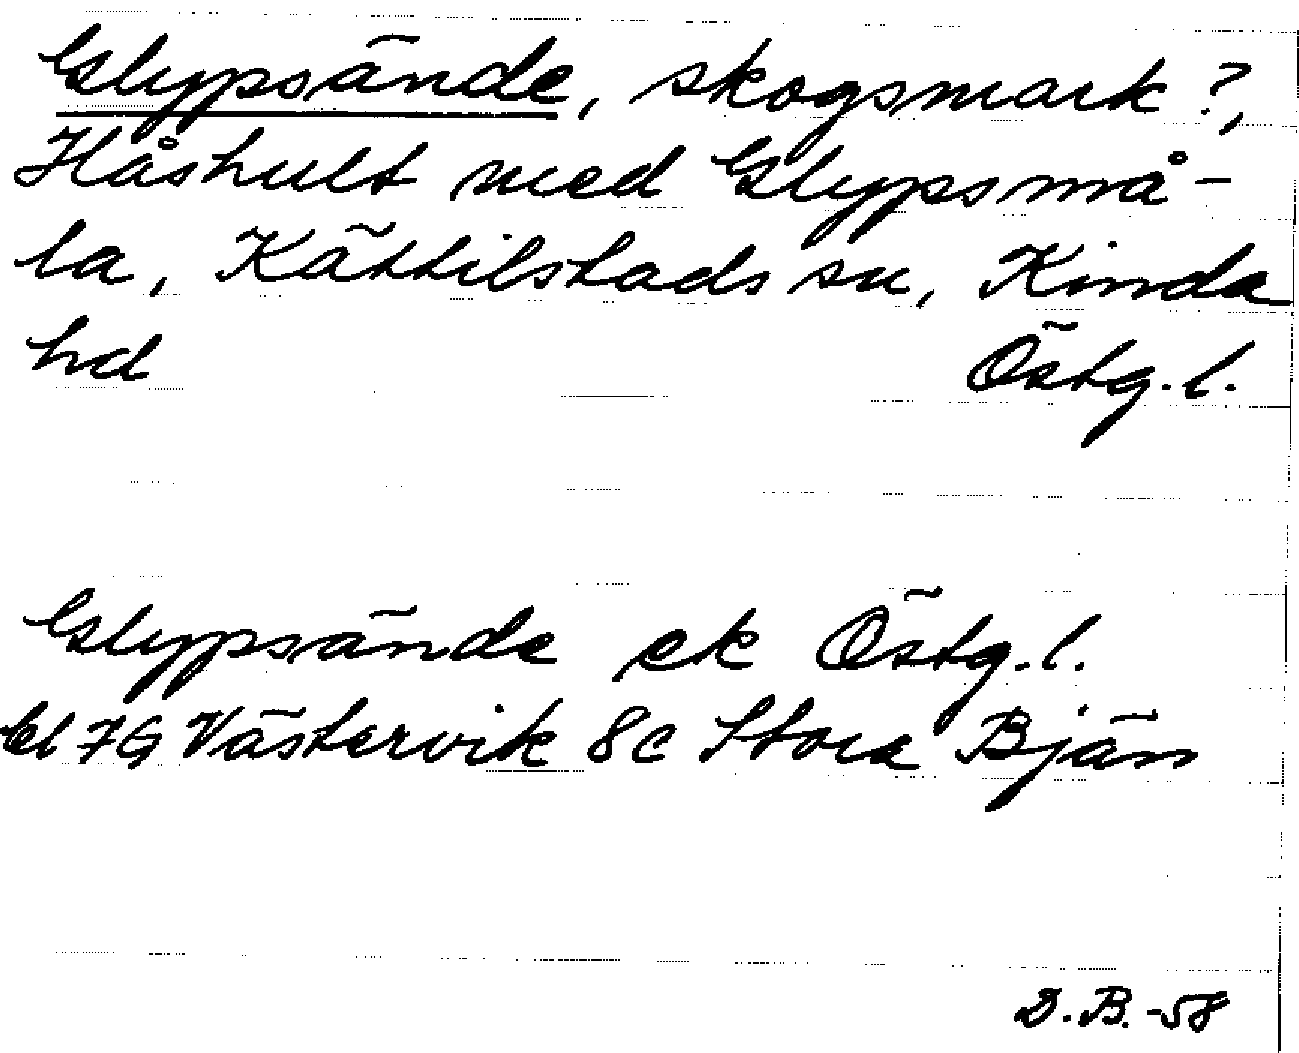 Glypsände, skogsmark?,
Håshult med Glypsmå-
la, Kättilstads sn, Kinda
hd Östg.l.
Glypsände ek Östg.l.
bl 7G Västervik 8c Stora Bjän
D.B.-58